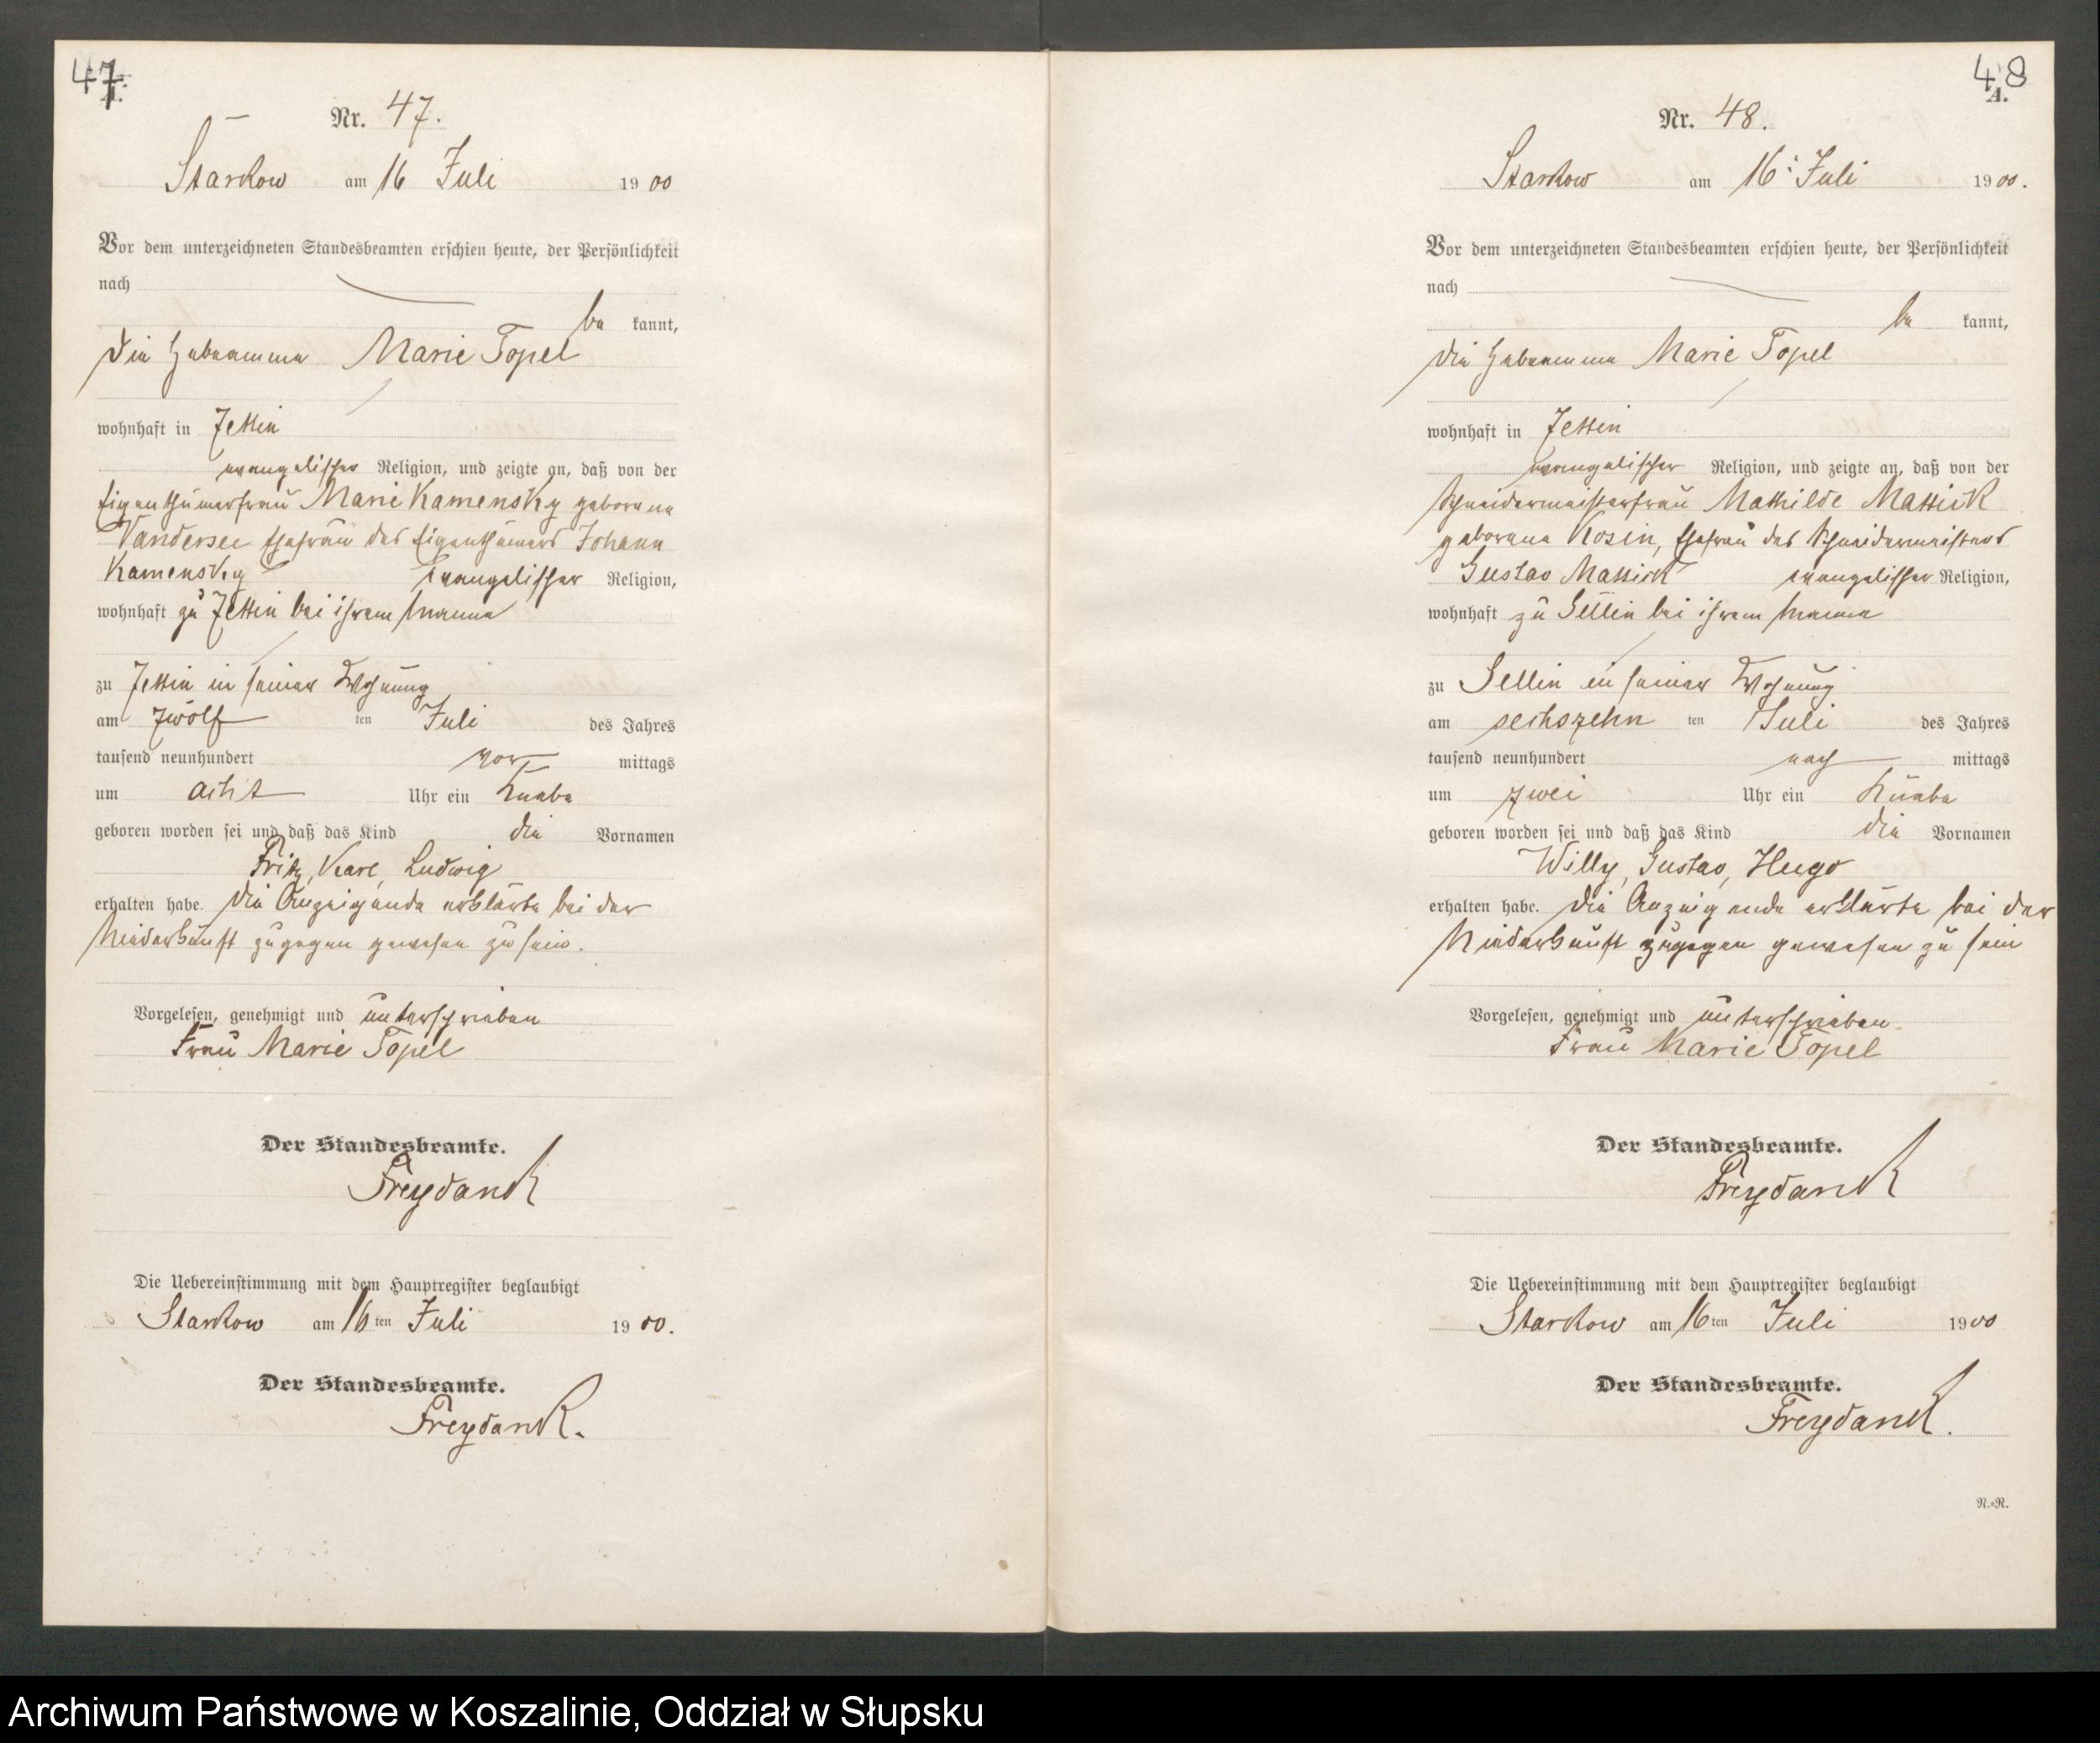 47.
Nr. 47.
Starkow am 16 Juli 1900
Vor dem unterzeichneten Standesbeamten erschien heute, der Persönlichkeit
nach
be kannt,
die Hebeamme Marie Topel
wohnhaft in
evangelischer Religion, und zeigte an, daß von der
Eigenthümerfrau Marie Kamensky geborene
Vandersee Ehefrau des Eigenthümers Johann
Kamensky evangelischer Religion,
wohnhaft zu bei ihrem Manne
zu in seiner Wohnung
am zwölf ten Juli des Jahres
tausend neunhundert vor mittags
um acht Uhr ein Knabe
geboren worden sei und daß das Kind die Vornamen
Fritz, Karl, Ludwig
erhalten habe. Die Anzeigende erklärte bei der
Niederkunft zugegen gewesen zu sein.
Vorgelesen, genehmigt und unterschrieben
Frau Marie Topel
Der Standesbeamte.
Freydank
Die Uebereinstimmung mit dem Hauptregister beglaubigt
Starkow am 16 ten Juli 1900.
Der Standesbeamte.
Freydank.
48
A.
Nr. 48.
Starkow am 16. Juli 1900.
Vor dem unterzeichneten Standesbeamten erschien heute, der Persönlichkeit
nach
be kannt,
die Hebeamme Marie Topel
wohnhaft in
evangelischer Religion, und zeigte an, daß von der
Schneidermeisterfrau Mathilde Mattick
geborene Kosin, Ehefrau des Schneidermeisters
Gustav Mattick evangelischer Religion,
wohnhaft zu Sellin bei ihrem Manne
zu Sellin in seiner Wohnung
am sechszehn ten Juli des Jahres
tausend neunhundert nach mittags
um zwei Uhr ein Knabe
geboren worden sei und daß das Kind die Vornamen
Willy, Gustav, Hugo
erhalten habe. Die Anzeigende erklärte bei der
Niederkunft zugegen gewesen zu sein
Vorgelesen, genehmigt und unterschrieben
Frau Marie Topel
Der Standesbeamte.
Freydank
Die Uebereinstimmung mit dem Hauptregister beglaubigt
Starkow am 16 ten Juli 1900
Der Standesbeamte.
Freydank.
N.=R.
Archiwum Państwowe w Koszalinie, Oddział w Słupsku